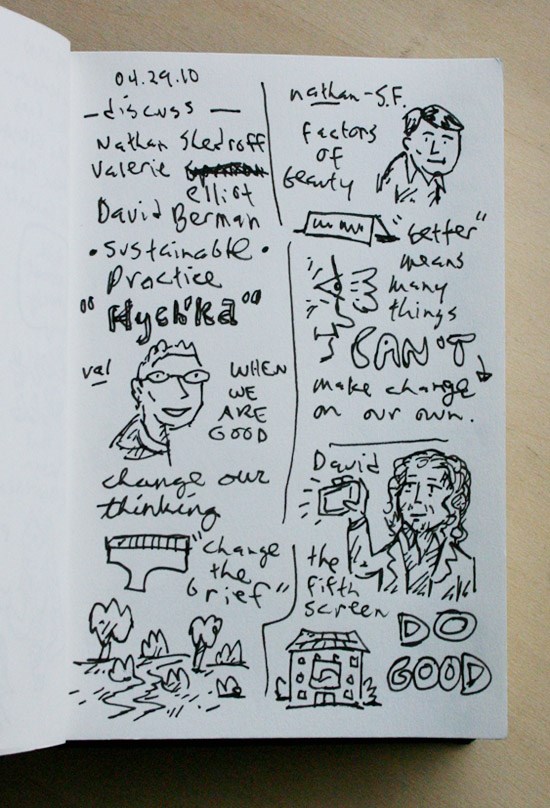 04.29.10
- discuss -
Nathan Shedroff
Valerie
elliot
David Berman
• Sustainable •
Practice
val
WHEN
WE
ARE
GOOD
change our
thinking
"change
the
brief"
nathan - S.F.
factors
of
beauty
"better"
means
many
things
I CAN'T
make change
on our own.
David
the
fifth
screen
DO
GOOD